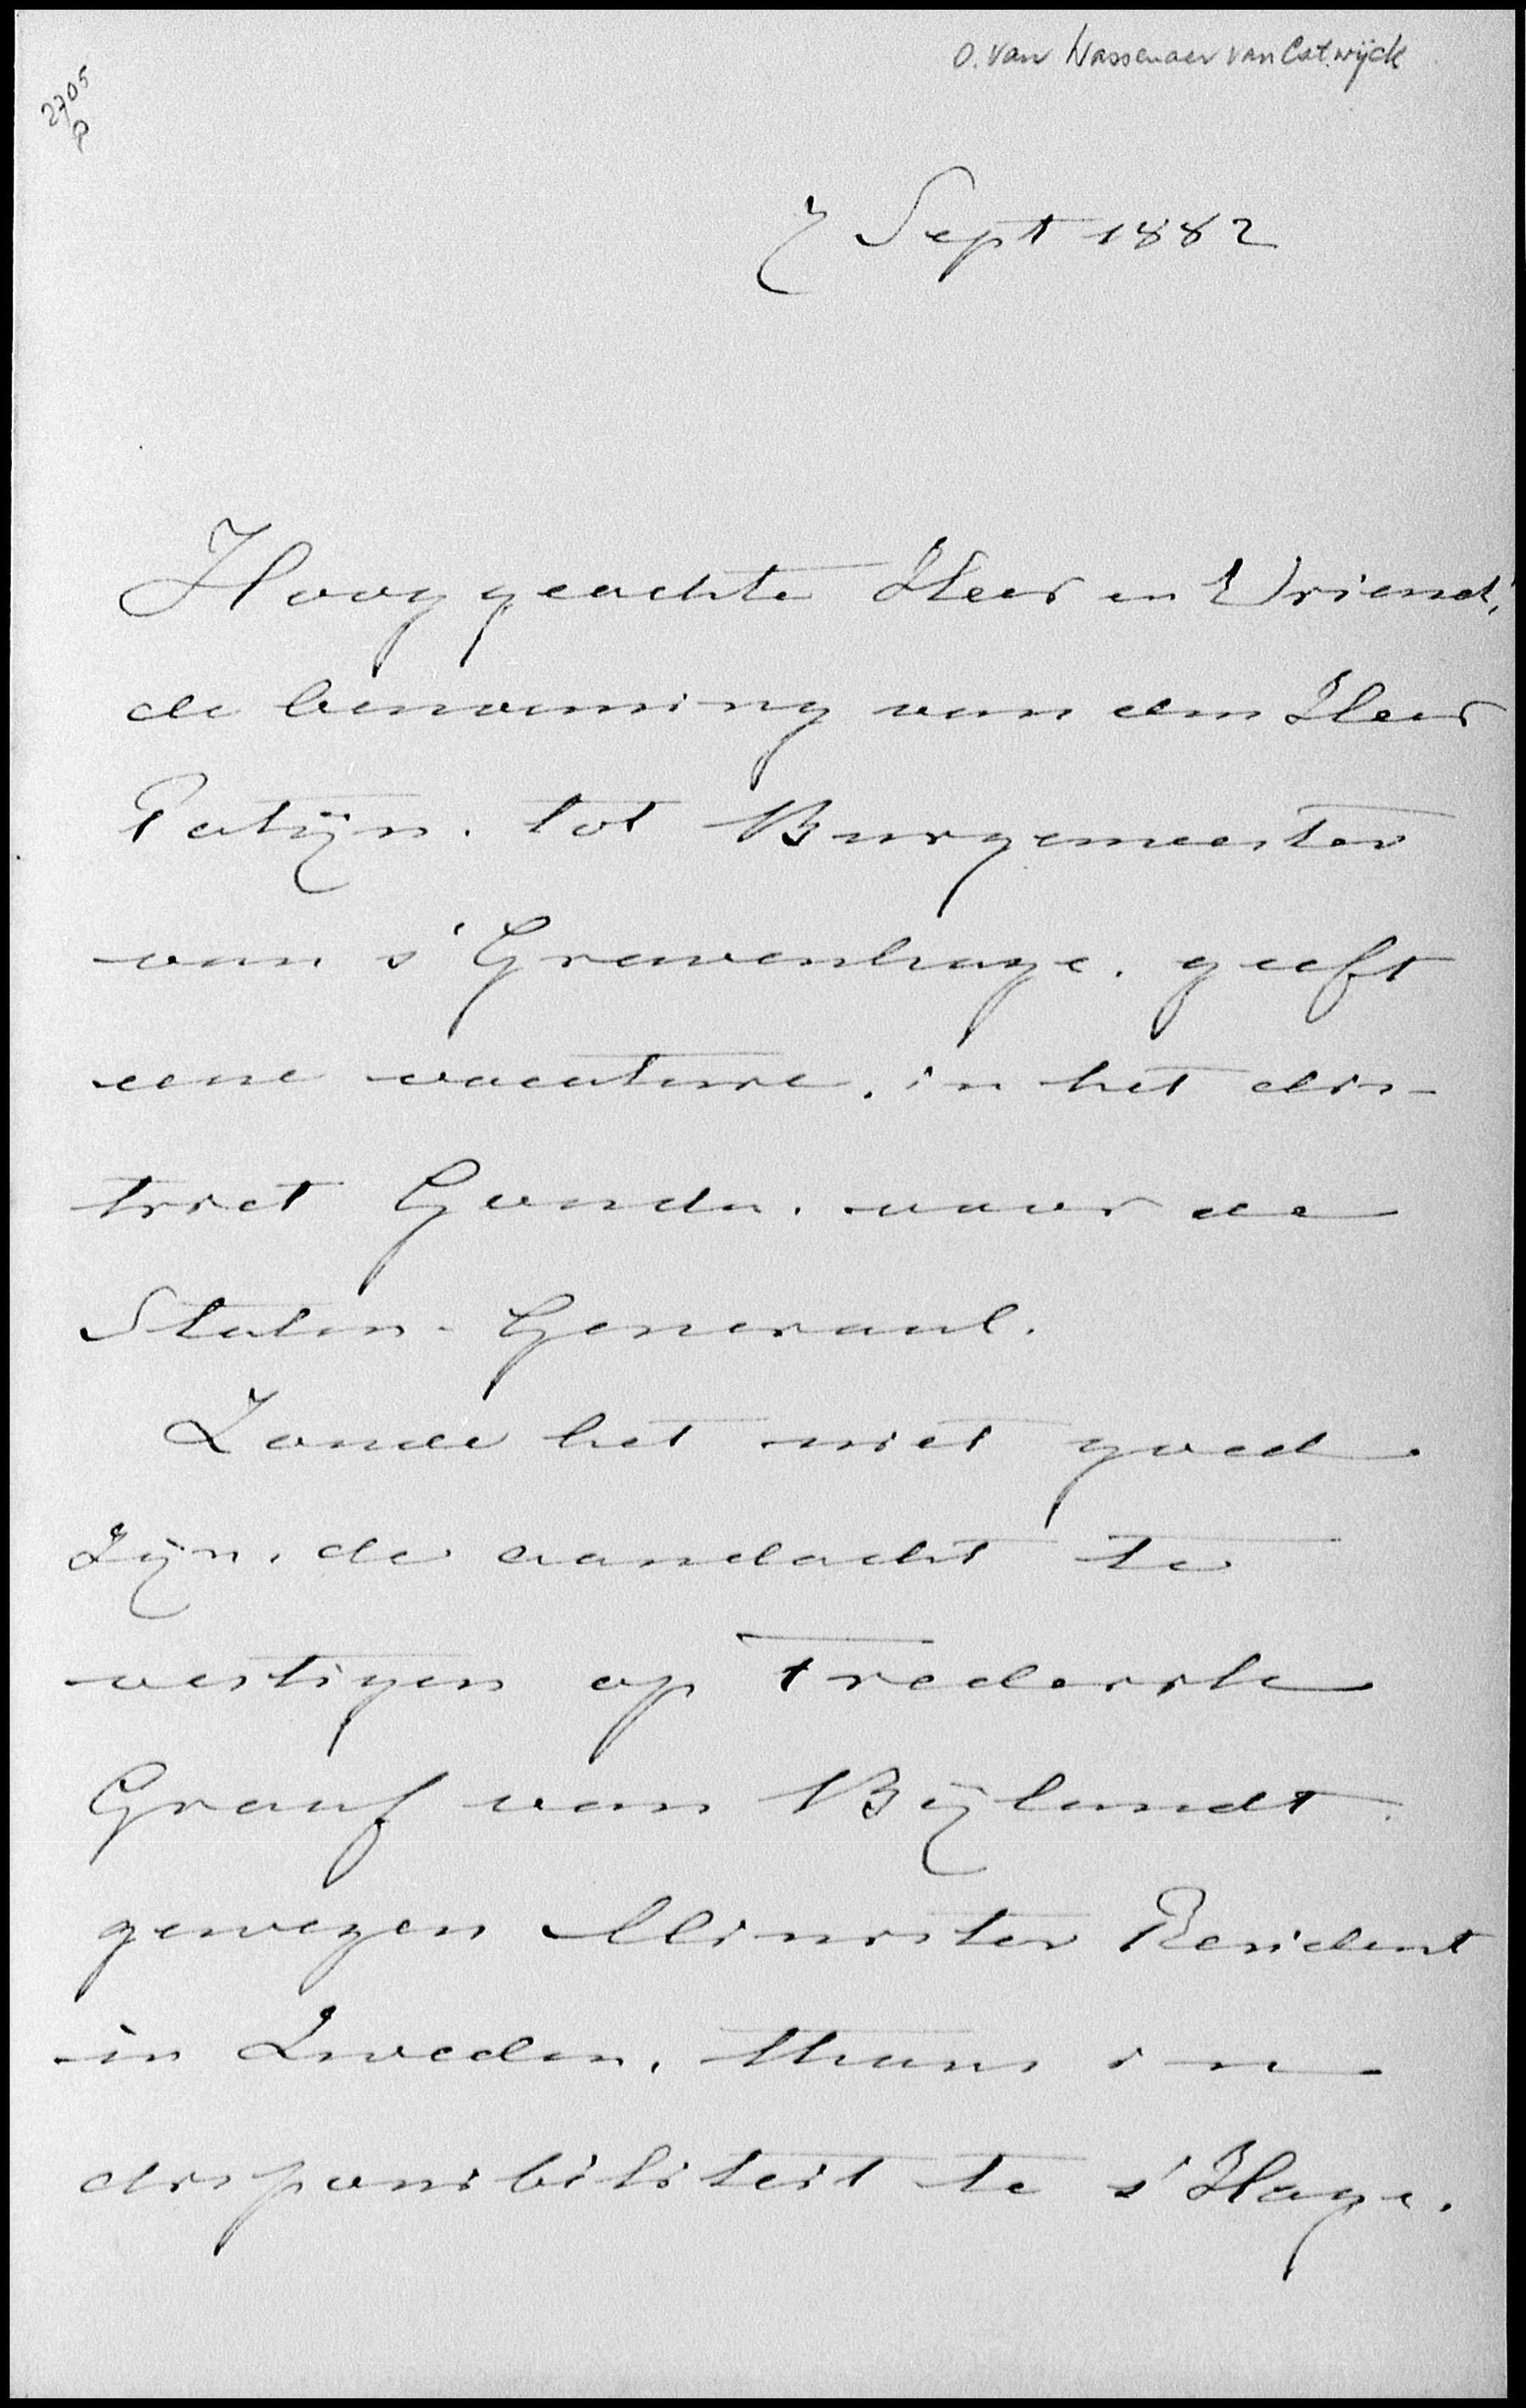 O. van Wassenaer van Catwijck
2705
P
7 Sept 1882
Hooggeachte Heer en Vriend!
de benoeming van den Heer
Patijn. tot Burgemeester
van s'Gravenhage. geeft
eene vacature. in het dis-
trict Gouda. voor de
Staten-Generaal.
Zoude het niet goed
Zijn. de aandacht te
vestigen op Frederik
Graaf van Bijlandt.
gewezen Minister Resident
in Zweden. thans in
disponibiliteit te s'Hage.